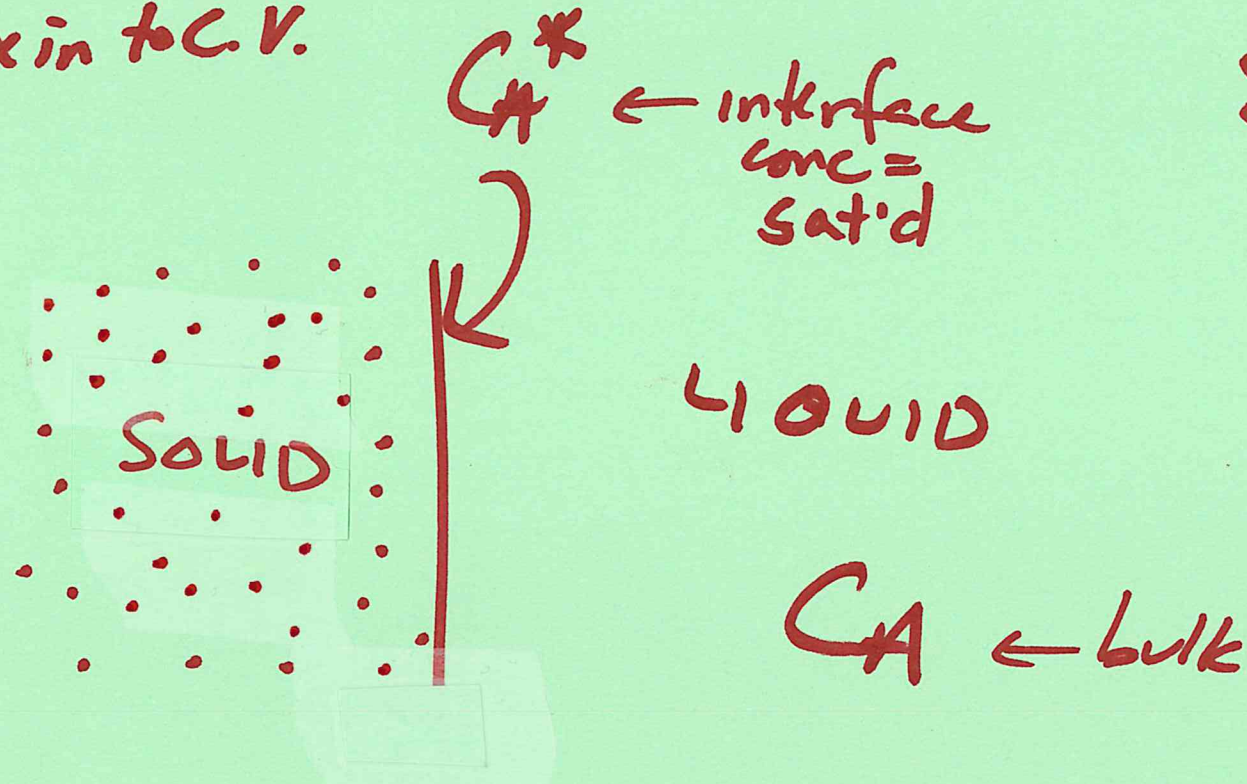 in to C.V.
CA*
← interface
conc =
sat'd
SOLID
LIQUID
CA ← bulk